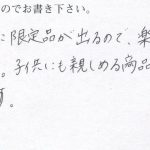 のでお書き下さい。
に限定品が出るので、楽
。子供にも親しめる商品
す。